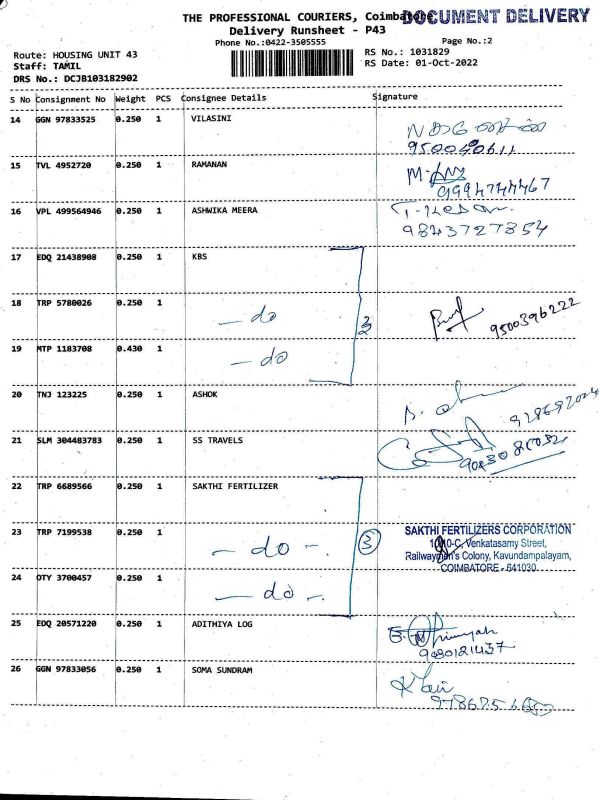 THE PROFESSIONAL COURIERS, Coimbatore
DOCUMENT DELIVERY
Delivery Runsheet - P43
Phone No.:0422-3505555
Page No.:2
Route: HOUSING UNIT 43
RS No.: 1031829
Staff: TAMIL
RS Date: 01-Oct-2022
DRS No.: DCJB103182902
S No Consignment No Weight PCS Consignee Details Signature
14 GGN 97833525 0.250 1 VILASINI
9500420611
15 TVL 4952720 0.250 1 RAMANAN
9994744467
16 VPL 499564946 0.250 1 ASHWIKA MEERA
9843727854
17 EDQ 21438908 0.250 1 KBS
18 TRP 5780026 0.250 1 - do 9500396222
19 MTP 1183708 0.430 1 - do
20 TNJ 123225 0.250 1 ASHOK
21 SLM 304483783 0.250 1 SS TRAVELS
22 TRP 6689566 0.250 1 SAKTHI FERTILIZER
23 TRP 7199538 0.250 1 - do -. 3
SAKTHI FERTILIZERS CORPORATION
Venkatasamy Street,
Railwaymen's Colony, Kavundampalayam,
COIMBATORE - 641030
24 OTY 3700457 0.250 1 - do -.
25 EDQ 20571220 0.250 1 ADITHIYA LOG
26 GGN 97833056 0.250 1 SOMA SUNDRAM